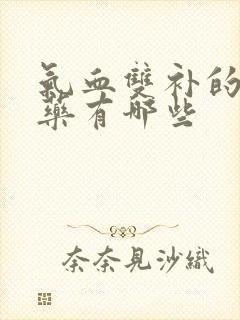 氣血雙补的
藥有哪些
奈奈見沙織